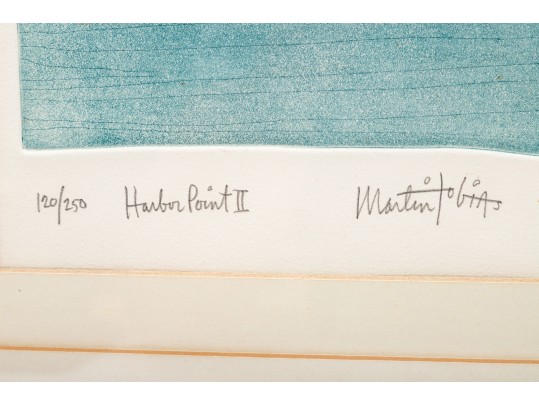 120/250 Harbor Point II Martin Tobias